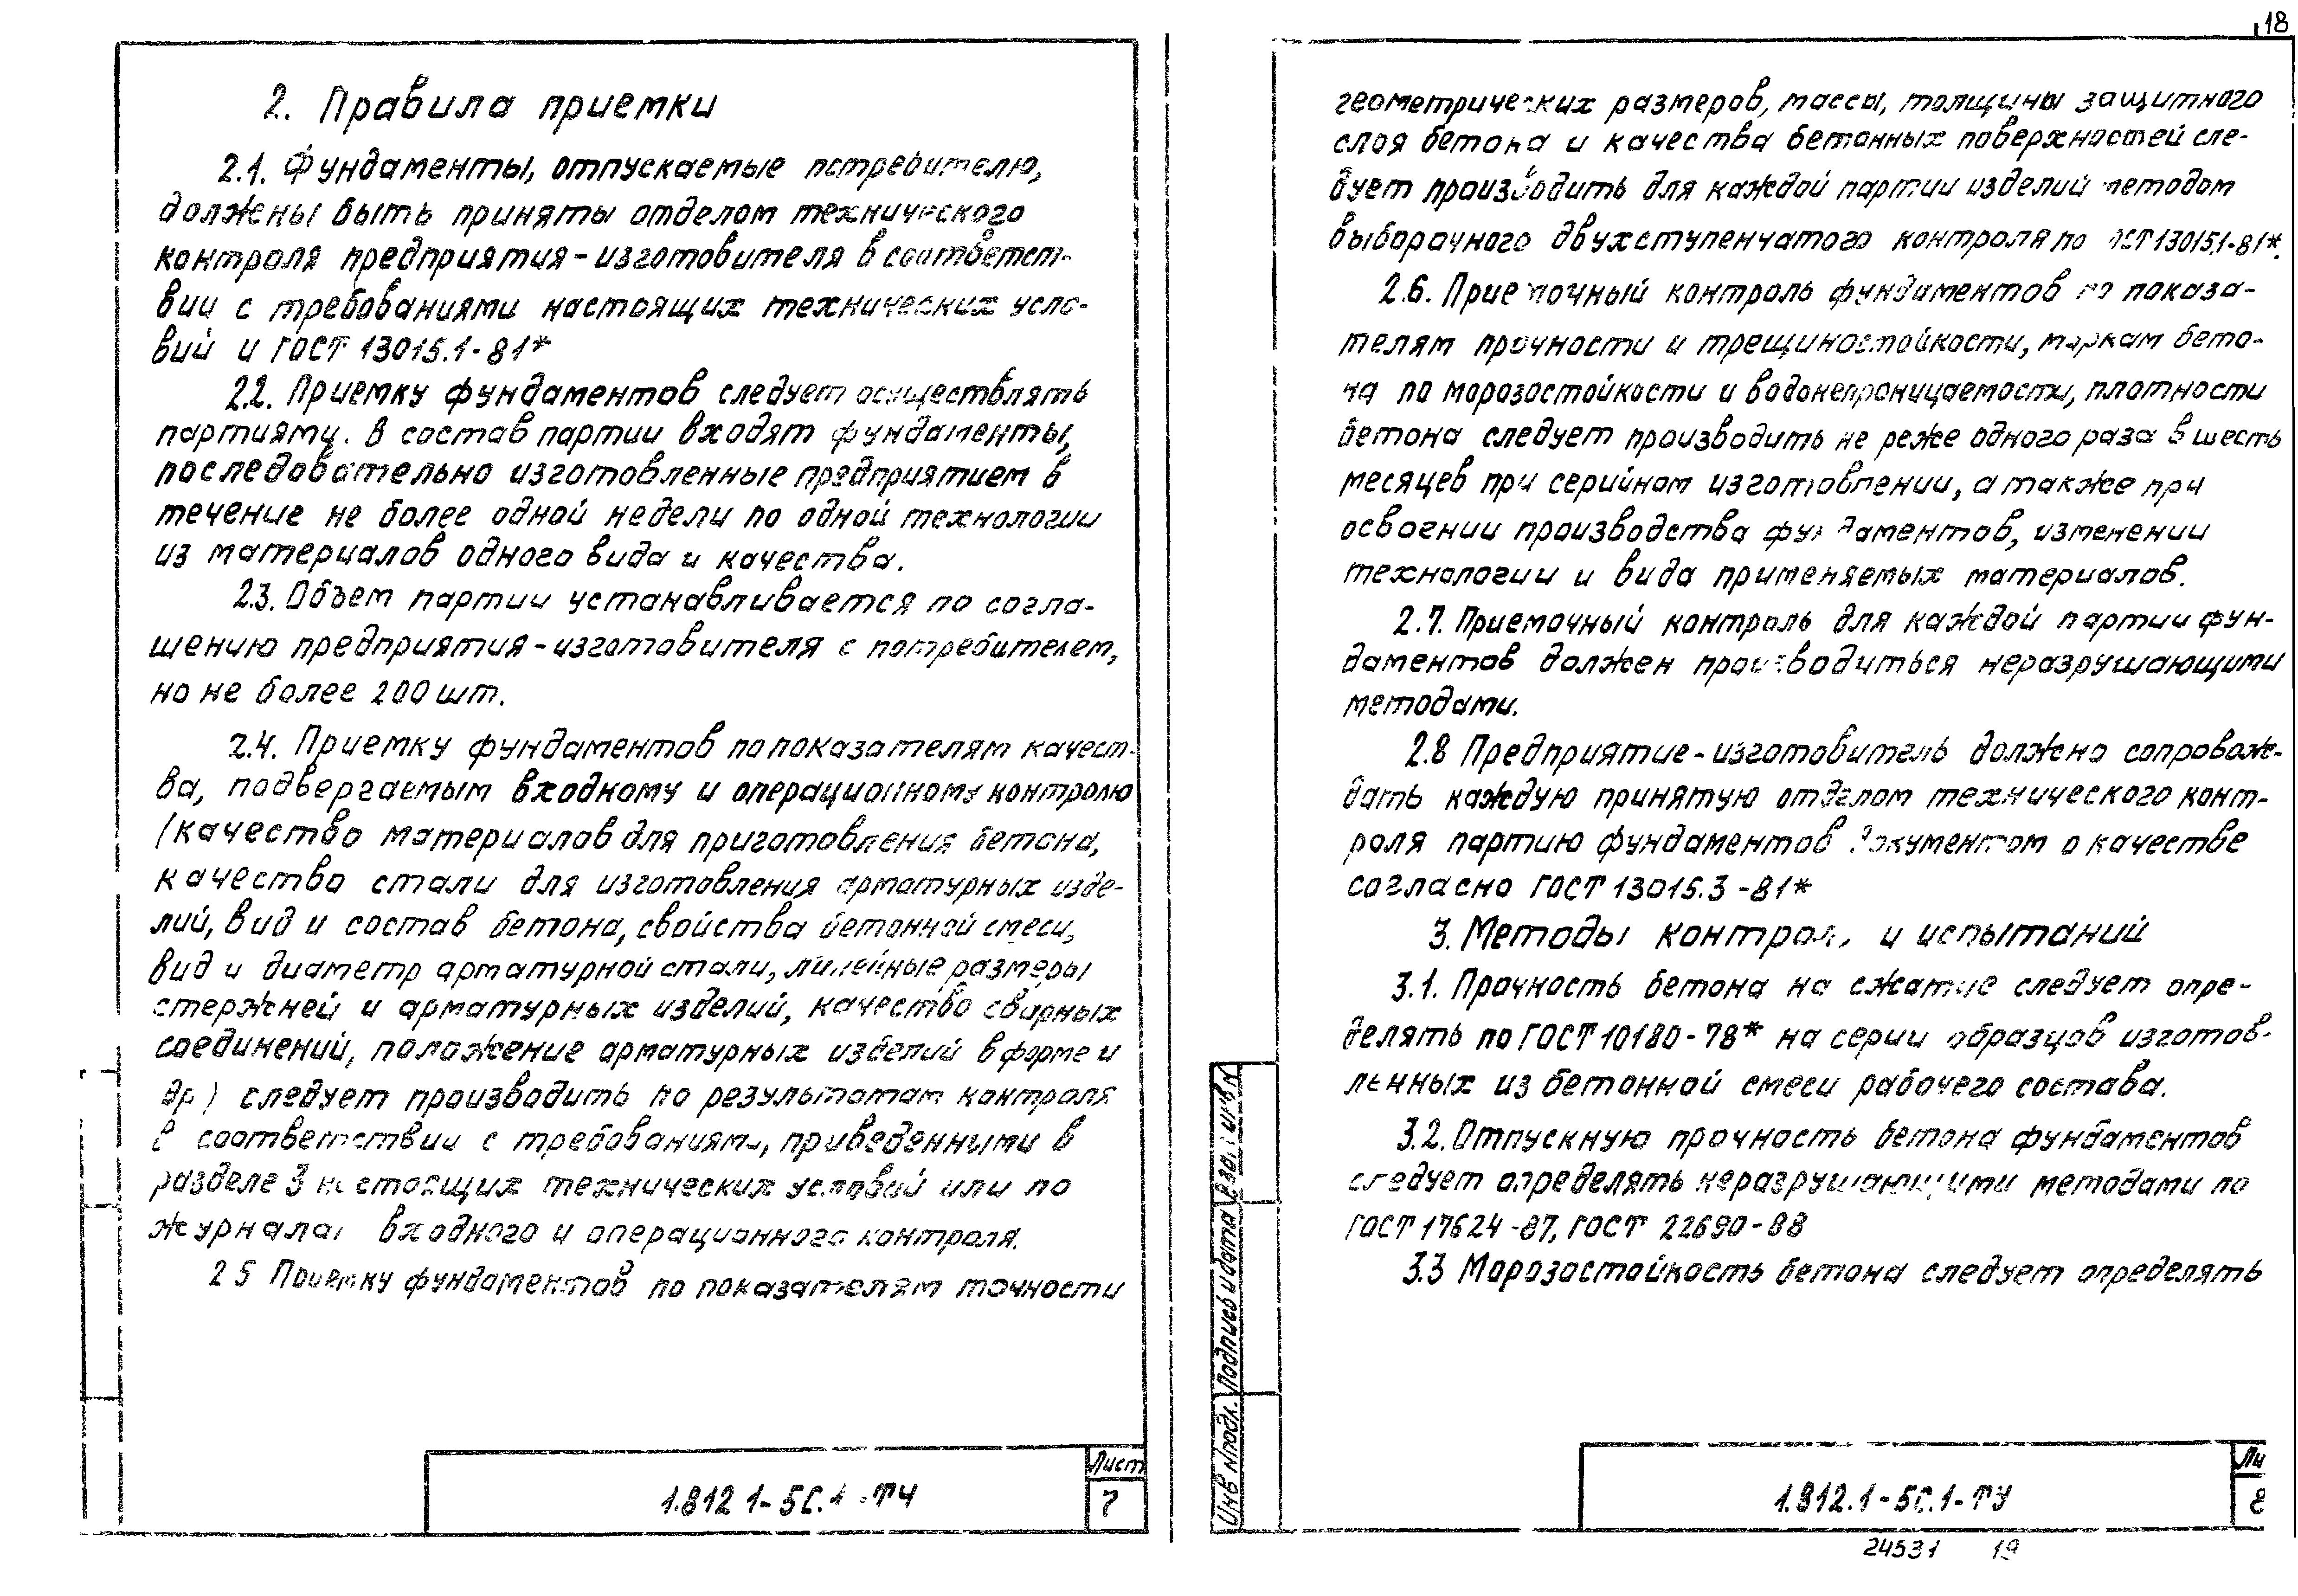 18
2. Правила приемки
2.1. Фундаменты, отпускаемые потребителю,
должены быть приняты отделом технического
контроля предприятия-изготовителя в соответст-
вии с требованиями настоящих технических усло-
вий и ГОСТ 13015.1-81*
2.2. Приемку фундаментов следует осуществлять
партиями. В состав партии входят фундаменты,
последовательно изготовленные предприятием в
течение не более одной недели по одной технологии
из материалов одного вида и качества.
2.3. Объем партии устанавливается по согла-
шению предприятия-изготовителя с потребителем,
но не более 200 шт.
2.4. Приемку фундаментов по показателям качест-
ва, подвергаемым входному и операционному контролю
(качество материалов для приготовления бетона,
качество стали для изготовления арматурных изде-
лий, вид и состав бетона, свойства бетонной смеси,
вид и диаметр арматурной стали, линейные размеры
стержней и арматурных изделий, качество сварных
соединений, положение арматурных изделий в форме и
др) следует производить по результатам контроля
в соответствии с требованиями, приведенными в
разделе 3 настоящих технических условий или по
журналам входного и операционного контроля.
2 5 Приемку фундаментов по показателям точности
Лист
1.812 1-5С.1-ТУ
7
геометрических размеров, массы, толщины защитного
слоя бетона и качества бетонных поверхностей сле-
дует производить для каждой партии изделий методом
выборочного двухступенчатого контроля по ГОСТ 13015.1-81*.
2.6. Приемочный контроль фундаментов по показа-
телям прочности и трещиностойкости, маркам бето-
на по морозостойкости и водонепроницаемости, плотности
бетона следует производить не реже одного раза в шесть
месяцев при серийном изготовлении, а также при
освоении производства фундаментов, изменении
технологии и вида применяемых материалов.
2.7. Приемочный контроль для каждой партии фун-
даментов должен производиться неразрушающими
методами.
2.8 Предприятие-изготовитель должно сопровож-
дать каждую принятую отделом технического конт-
роля партию фундаментов документом о качестве
согласно ГОСТ 13015.3-81*
3. Методы контроля и испытаний
3.1. Прочность бетона на сжатие следует опре-
делять по ГОСТ 10180-78* на серии образцов изготов-
ленных из бетонной смеси рабочего состава.
3.2. Отпускную прочность бетона фундаментов
следует определять неразрушающими методами по
ГОСТ 17624-87, ГОСТ 22690-88
3.3 Морозостойкость бетона следует определять
Инв №подл. Подпись и дата Взам инв №
Ли
1.812.1-5С.1-ТУ
8
24531 19